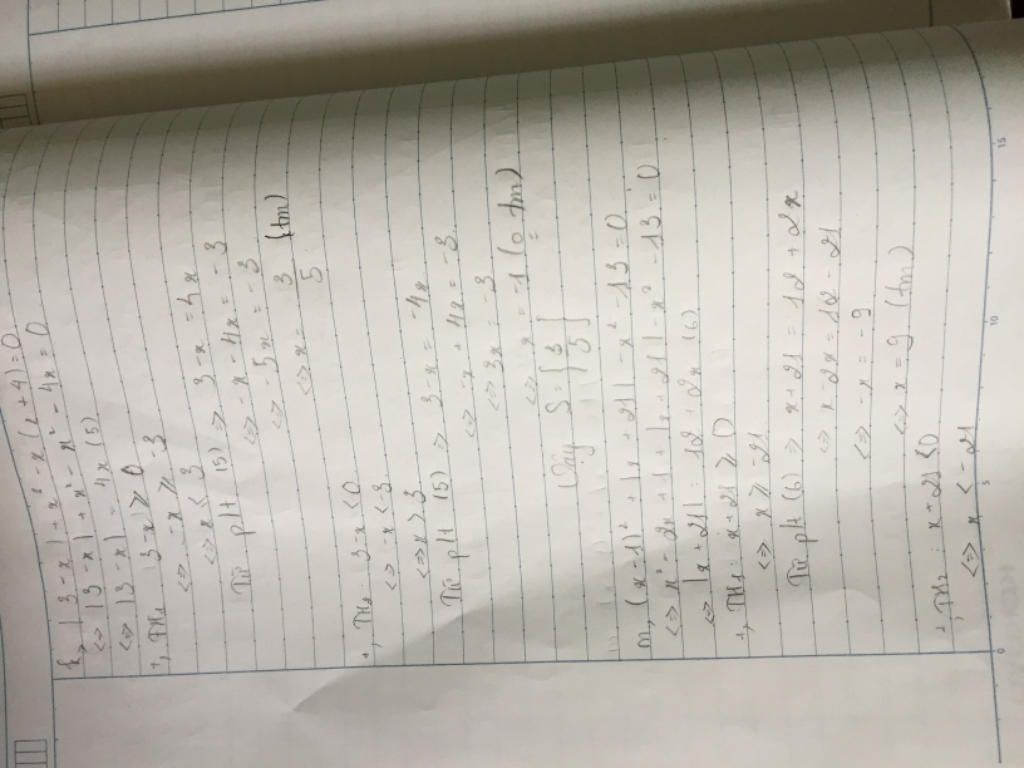 k, |3-x| + x² - x(x+4) = 0
<=> |3-x| + x² - x² - 4x = 0
<=> |3-x| = 4x (5)
+, TH1: 3-x ≥ 0
<=> -x ≥ -3
<=> x ≤ 3
Từ pt (5) => 3-x = 4x
<=> -x - 4x = -3
<=> -5x = -3
<=> x = 3/5 (tm)
+, TH2: 3-x < 0
<=> -x < -3
<=> x > 3
Từ pt (5) => 3-x = -4x
<=> -x + 4x = -3
<=> 3x = -3
<=> x = -1 (o tm)
Vậy S = {3/5}
m, (x-1)² + |x+21| - x² - 13 = 0
<=> x² - 2x + 1 + |x+21| - x² - 13 = 0
<=> |x+21| = 12 + 2x (6)
+, TH1: x+21 ≥ 0
<=> x ≥ -21
Từ pt (6) => x+21 = 12 + 2x
<=> x - 2x = 12 - 21
<=> -x = -9
<=> x = 9 (tm)
+, TH2: x+21 < 0
<=> x < -21
0
5
10
15